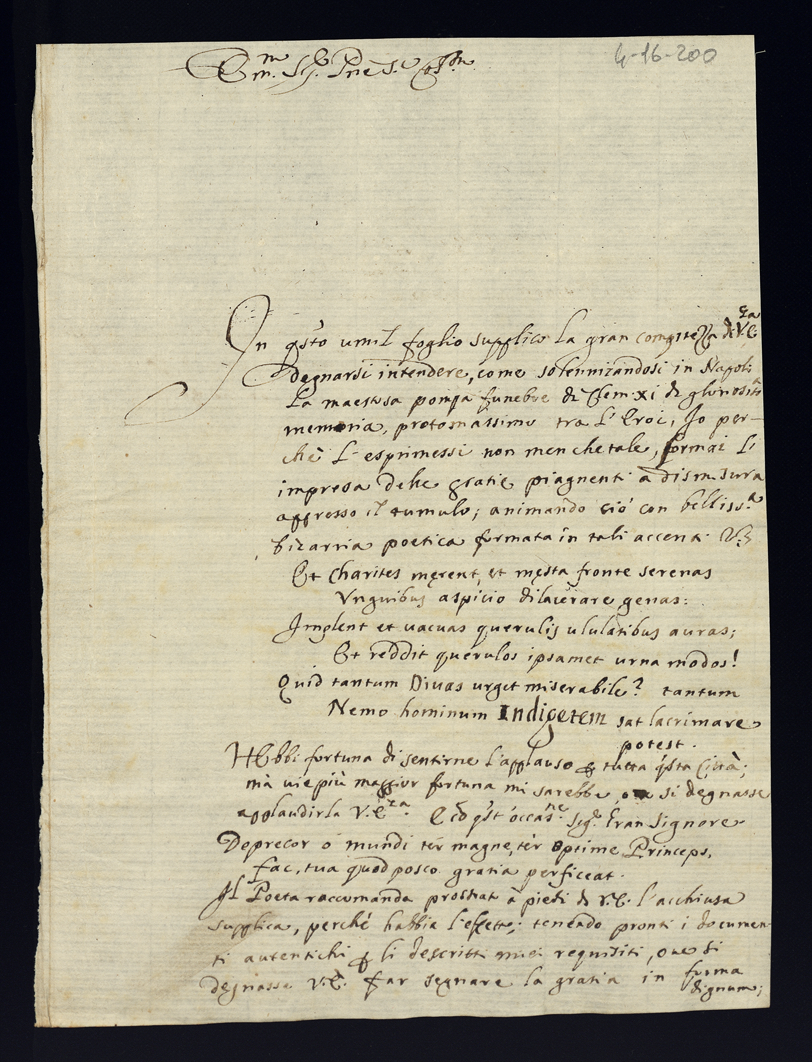 4-16-200
Em.mo Sig.r Pne S.e Col.mo
In q.sto umil foglio supplico la gran compitezza di V.E.za
degnarsi intendere, come solennizandosi in Napoli
la maestosa pompa funebre di Clem. XI di gloriosis.a
memoria, protomassimo tra l'Eroi, Io per-
chè l'esprimessi non menchetale, formai l'
impresa delle Gratie piagnenti a dismisura
appresso il tumulo; animando ciò con belliss.a
bizarria poetica formata in tali accena. V3
Et Charites męrent, et męsta fronte serenas
Vnguibus aspicio dilacerare genas:
Implent et vacuas querulis ululatibus auras;
Et reddit querulos ipsamet urna modos!
Quid tantum Divas urget miserabile? tantum
Nemo hominum Indigetem sat lacrimare
potest.
Hebbi fortuna di sentirne l'applauso p tutta q.sta Città;
mà vie più maggior fortuna mi sarebbe, ove si degnasse
applaudirla V.E.za. E cō q.st'occas.ne Sig.r Gran Signore
Deprecor ò mundi tèr magne, tèr optime Princeps,
Fac, tua quod posco gratia perficeat.
Il Poeta raccomanda prostrat à piedi di V.E. l'acchiusa
supplica, perché habbia l'effetto; tenendo pronti i documen-
ti autentichi p li descritti miei requisiti, ove si
degnasse V.E. far segnare la gratia in forma
dignum;